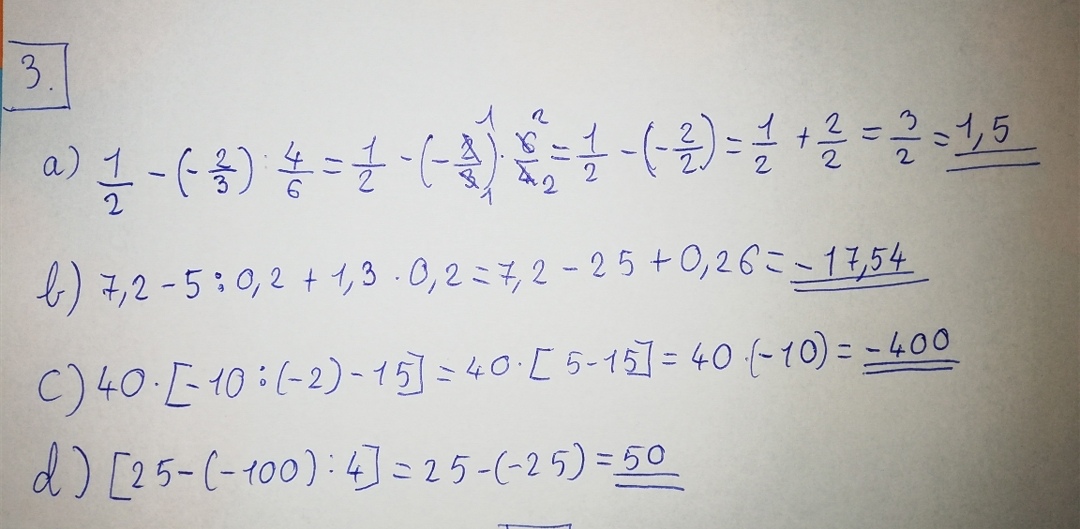 3.
a) 1/2 - (-2/3) : 4/6 = 1/2 - (-2/3) · 6/4 = 1/2 - (-2/2) = 1/2 + 2/2 = 3/2 = 1,5
b) 7,2 - 5 : 0,2 + 1,3 · 0,2 = 7,2 - 25 + 0,26 = -17,54
c) 40 · [-10 : (-2) - 15] = 40 · [5 - 15] = 40 · (-10) = -400
d) [25 - (-100) : 4] = 25 - (-25) = 50